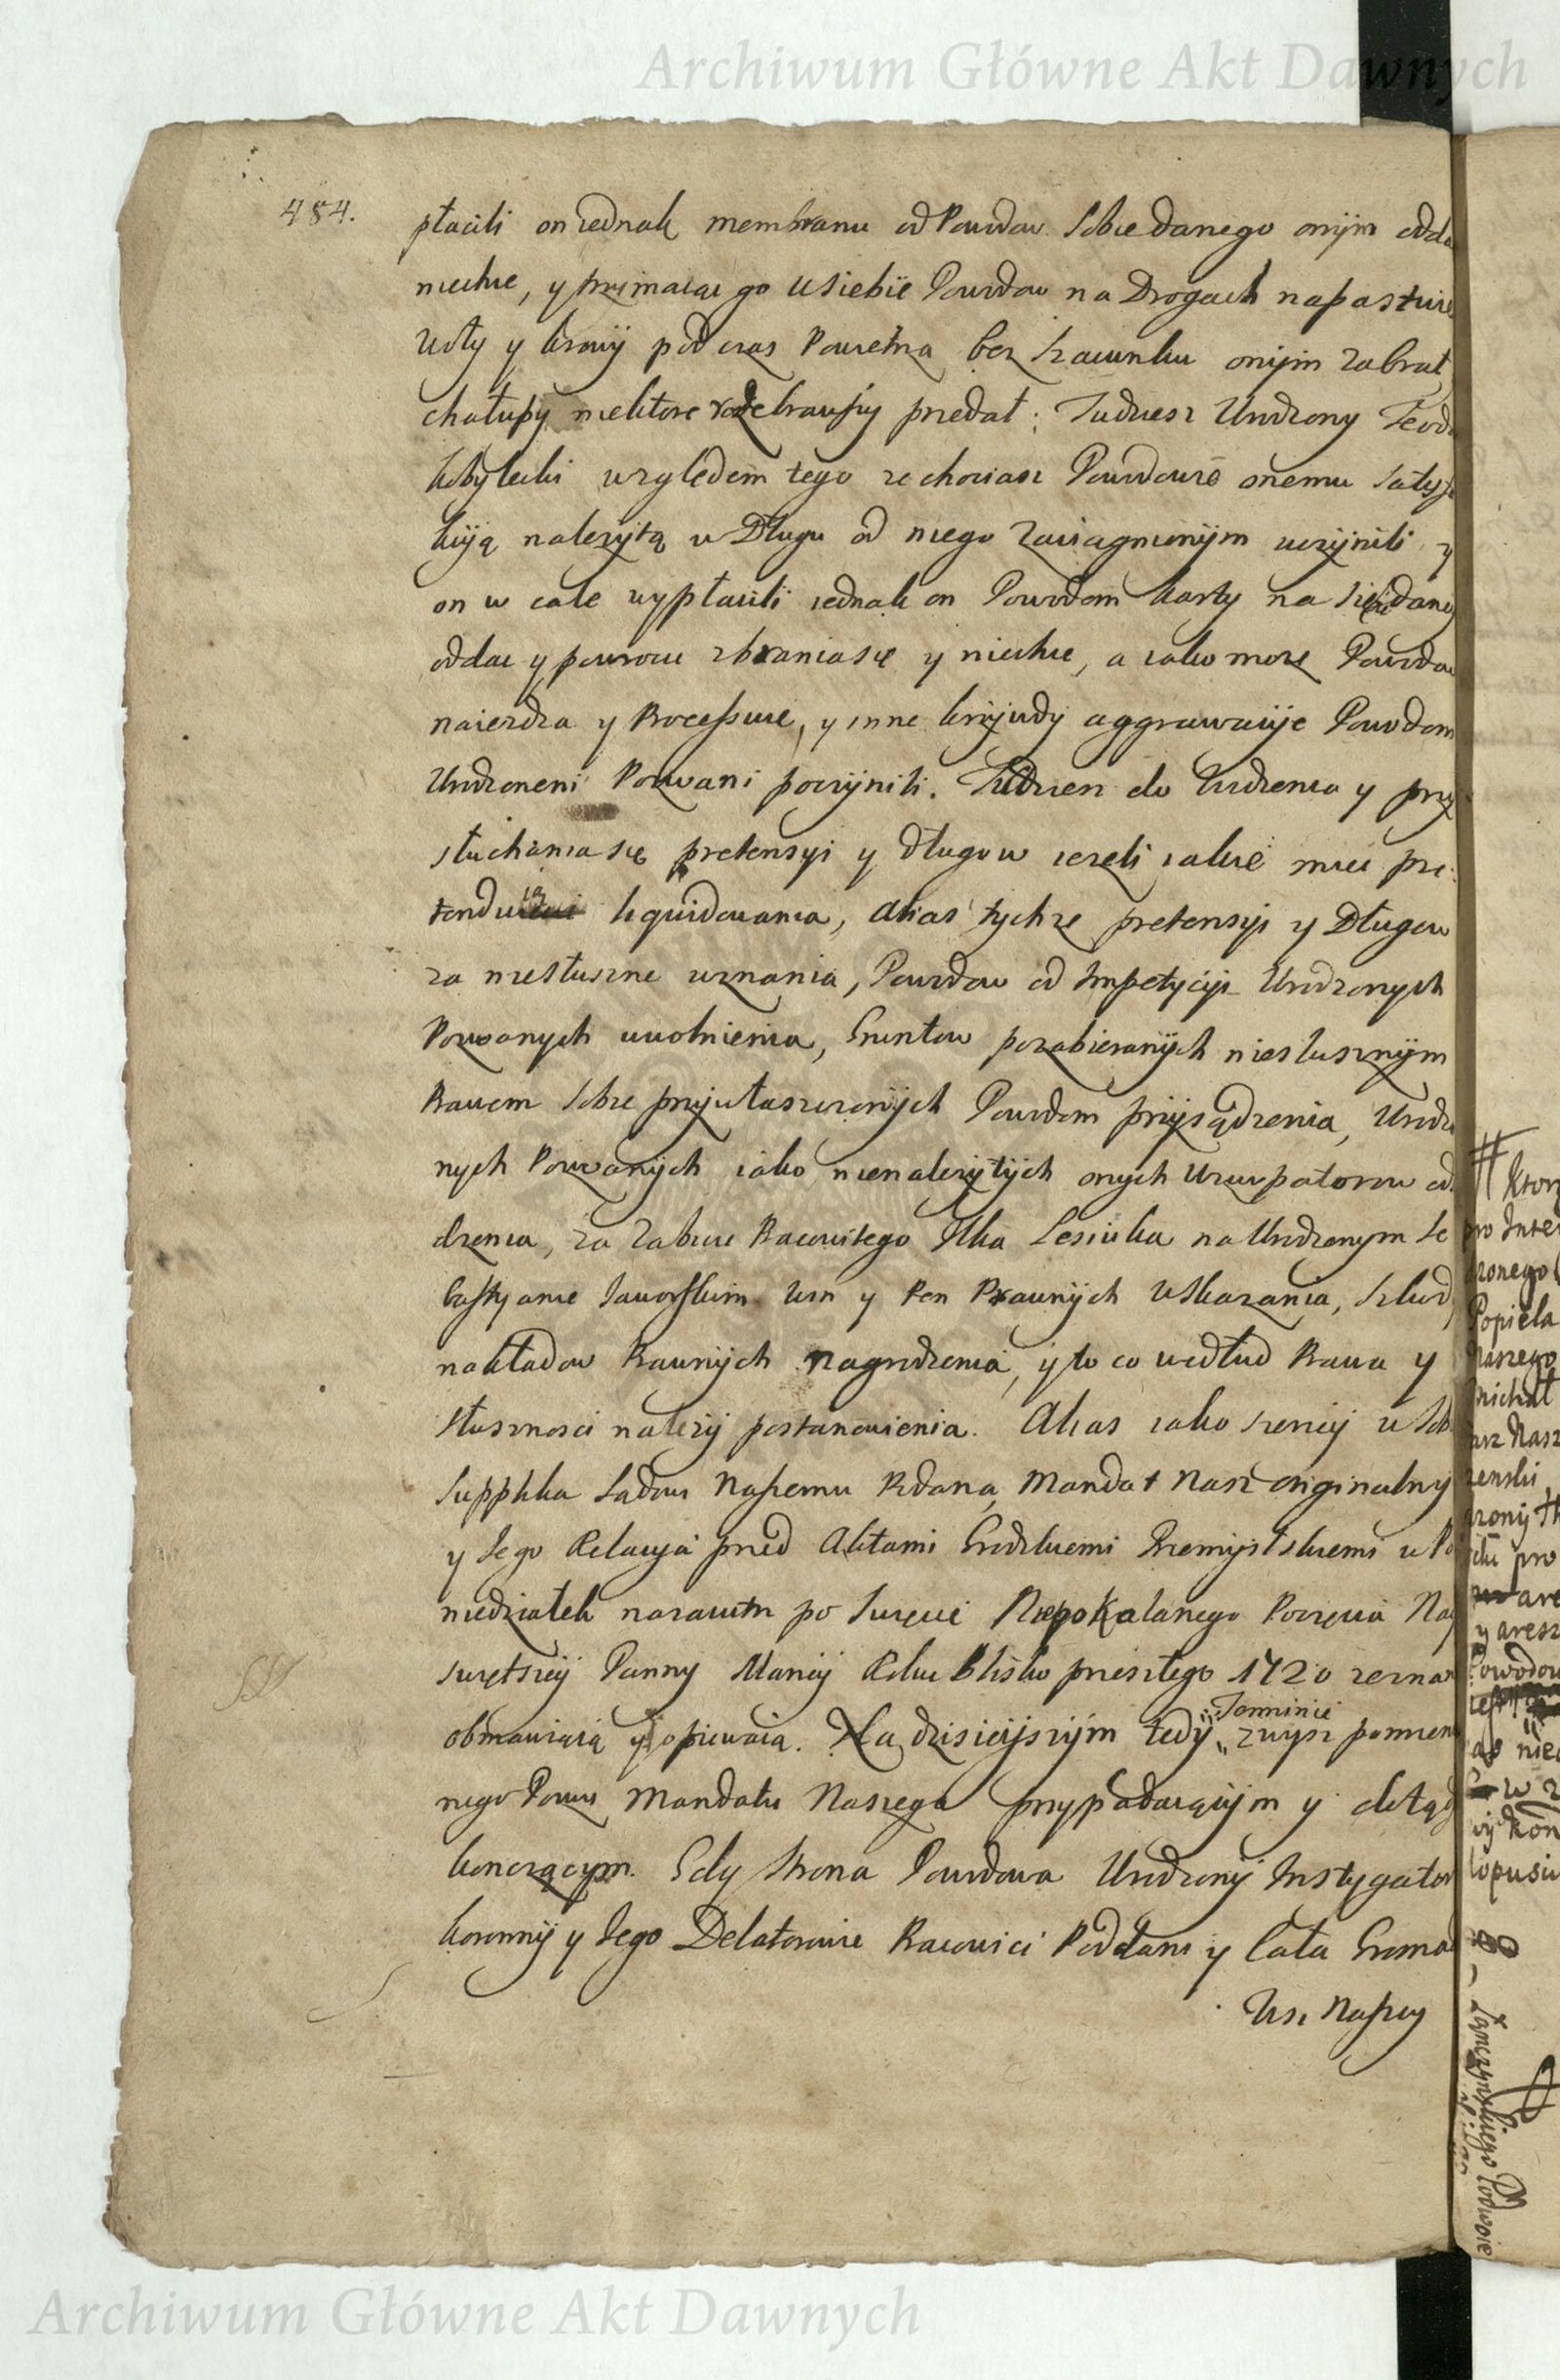 Archiwum Główne Akt Dawnych
484.
płacili on iednak membranu od Powodow Sobie danego onym odda
niechce, y trzimaiąc go u siebie Powodow na Drogach napastuie
Woły y krowy pod czas Powietrza bez szacunku onym zabrał
chałupy niektore rozebrawszy przedał; Tudziesz Urodzony Teod
Kobylecki względem tego ze chociasz Powodowie onemu satysf
kcyją nalezytą w Długu od niego zaciągnionym uczynili y
on w cale wypłacili iednak on Powodom karty na siebie daney
oddac y powrocic zbrania się y niechce, a iako moze Powodow
naiezdza y Processuie, y inne krzywdy aggrawacyie Powodom
Urodzoneni Pozwani poczynili. Tudziesz do Widzenia y przy
słuchania się pretensyi y długow iezeli iakie miec pre:
tenduią liquidowania, alias tychze pretensyi y Długow
za niesłuszne uznania, Powodow od Impetycyi Urodzonych
Pozwanych uwolnienia, Gruntow pozabieranych niesłusznym
Prawem Sobie przywłaszczonych Powodom przysądzenia, Urodzo
nych Pozwanych iako nienalezytych onych Uzurpatorow od
dzenia, za Zabicie Pracowitego Ilka Lesiuka na Urodzonym Se
bastyanie Jaworskim Win y Pen Prawnych Wskazania, szkod
nakładow Prawnych nagrodzenia, y to co według Prawa y
słusznosci nalezy postanowienia. Alias iako szerzey w Sob
Supplika Sądowi Naszemu Podana, Mandat Nasz originalny
y Jego Relacyia przed Aktami Grodzkiemi Przemyslskiemi w Po
niedziałek nazaiutrz po Swięcie Niepokalanego Poczęcia Nay
swiętszey Panny Maryi Roku blisko przeszłego 1720 zeznan
obmawiaią y opiewaia. Na dzisieyszym tedy Terminie zwysz pomien
nego Pozwu Mandatu Naszego przypadaiącym y dotąd
konczącym. Gdy Strona Powodowa Urodzony Instygator
koronny y Jego Delatorowie Pracowici Poddani y Cała Gromad
Wsi Naszey
ktory
pro Inte
dzonego
Popiela
Naszego
Michał
Nasz
pro
are
y aresz
Powodow
nie
kon
opusc
Podwoie
Archiwum Główne Akt Dawnych